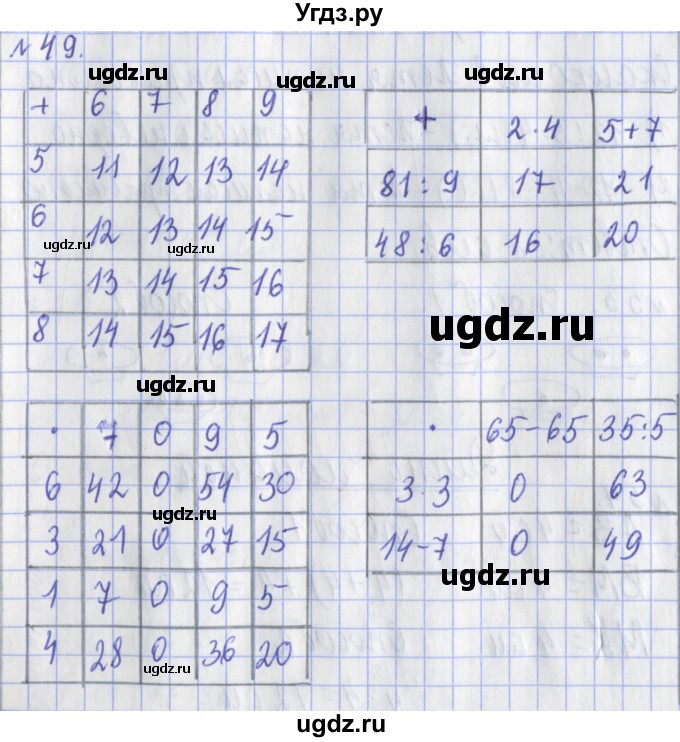 Угдз.ру
№ 49.
ugdz.ru ugdz.ru ugdz.ru
+ 6 7 8 9
5 11 12 13 14
6 12 13 14 15
ugdz.ru ugdz.ru
7 13 14 15 16
8 14 15 16 17
+ 2·4 5+7
81:9 17 21
48:6 16 20
ugdz.ru
ugdz.ru ugdz.ru
· 7 0 9 5
6 42 0 54 30
ugdz.ru
3 21 0 27 15
1 7 0 9 5
4 28 0 36 20
ugdz.ru
· 65-65 35:5
3·3 0 63
14-7 0 49
ugdz.ru
ugdz.ru